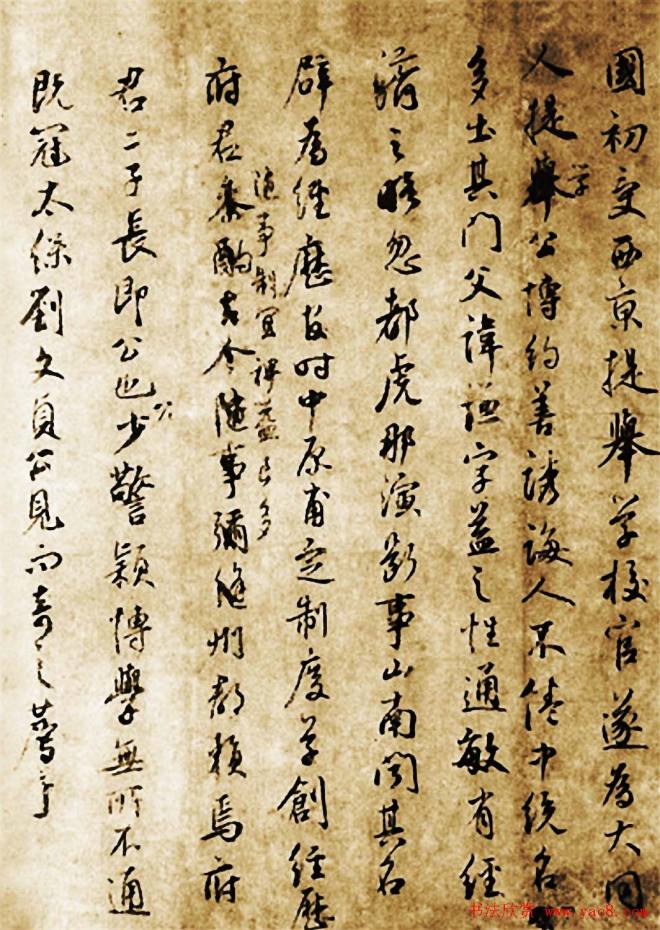 國初受西京提舉学校官遂為大同
人提舉学公博約善誘誨人不倦中統名
多出其門父諱謙字益之性通敏有經
濟之略忽都虎那演断事山南聞其名
辟為經歷时中原甫定制度草創經歷
隨事制宜裨益良多
府君參酌古今隨事彌縫州郡賴焉府
公
君二子長即公也少警穎博學無所不通
既冠太保劉文貞公見而奇之薦于
书法欣赏 www.yac8.com